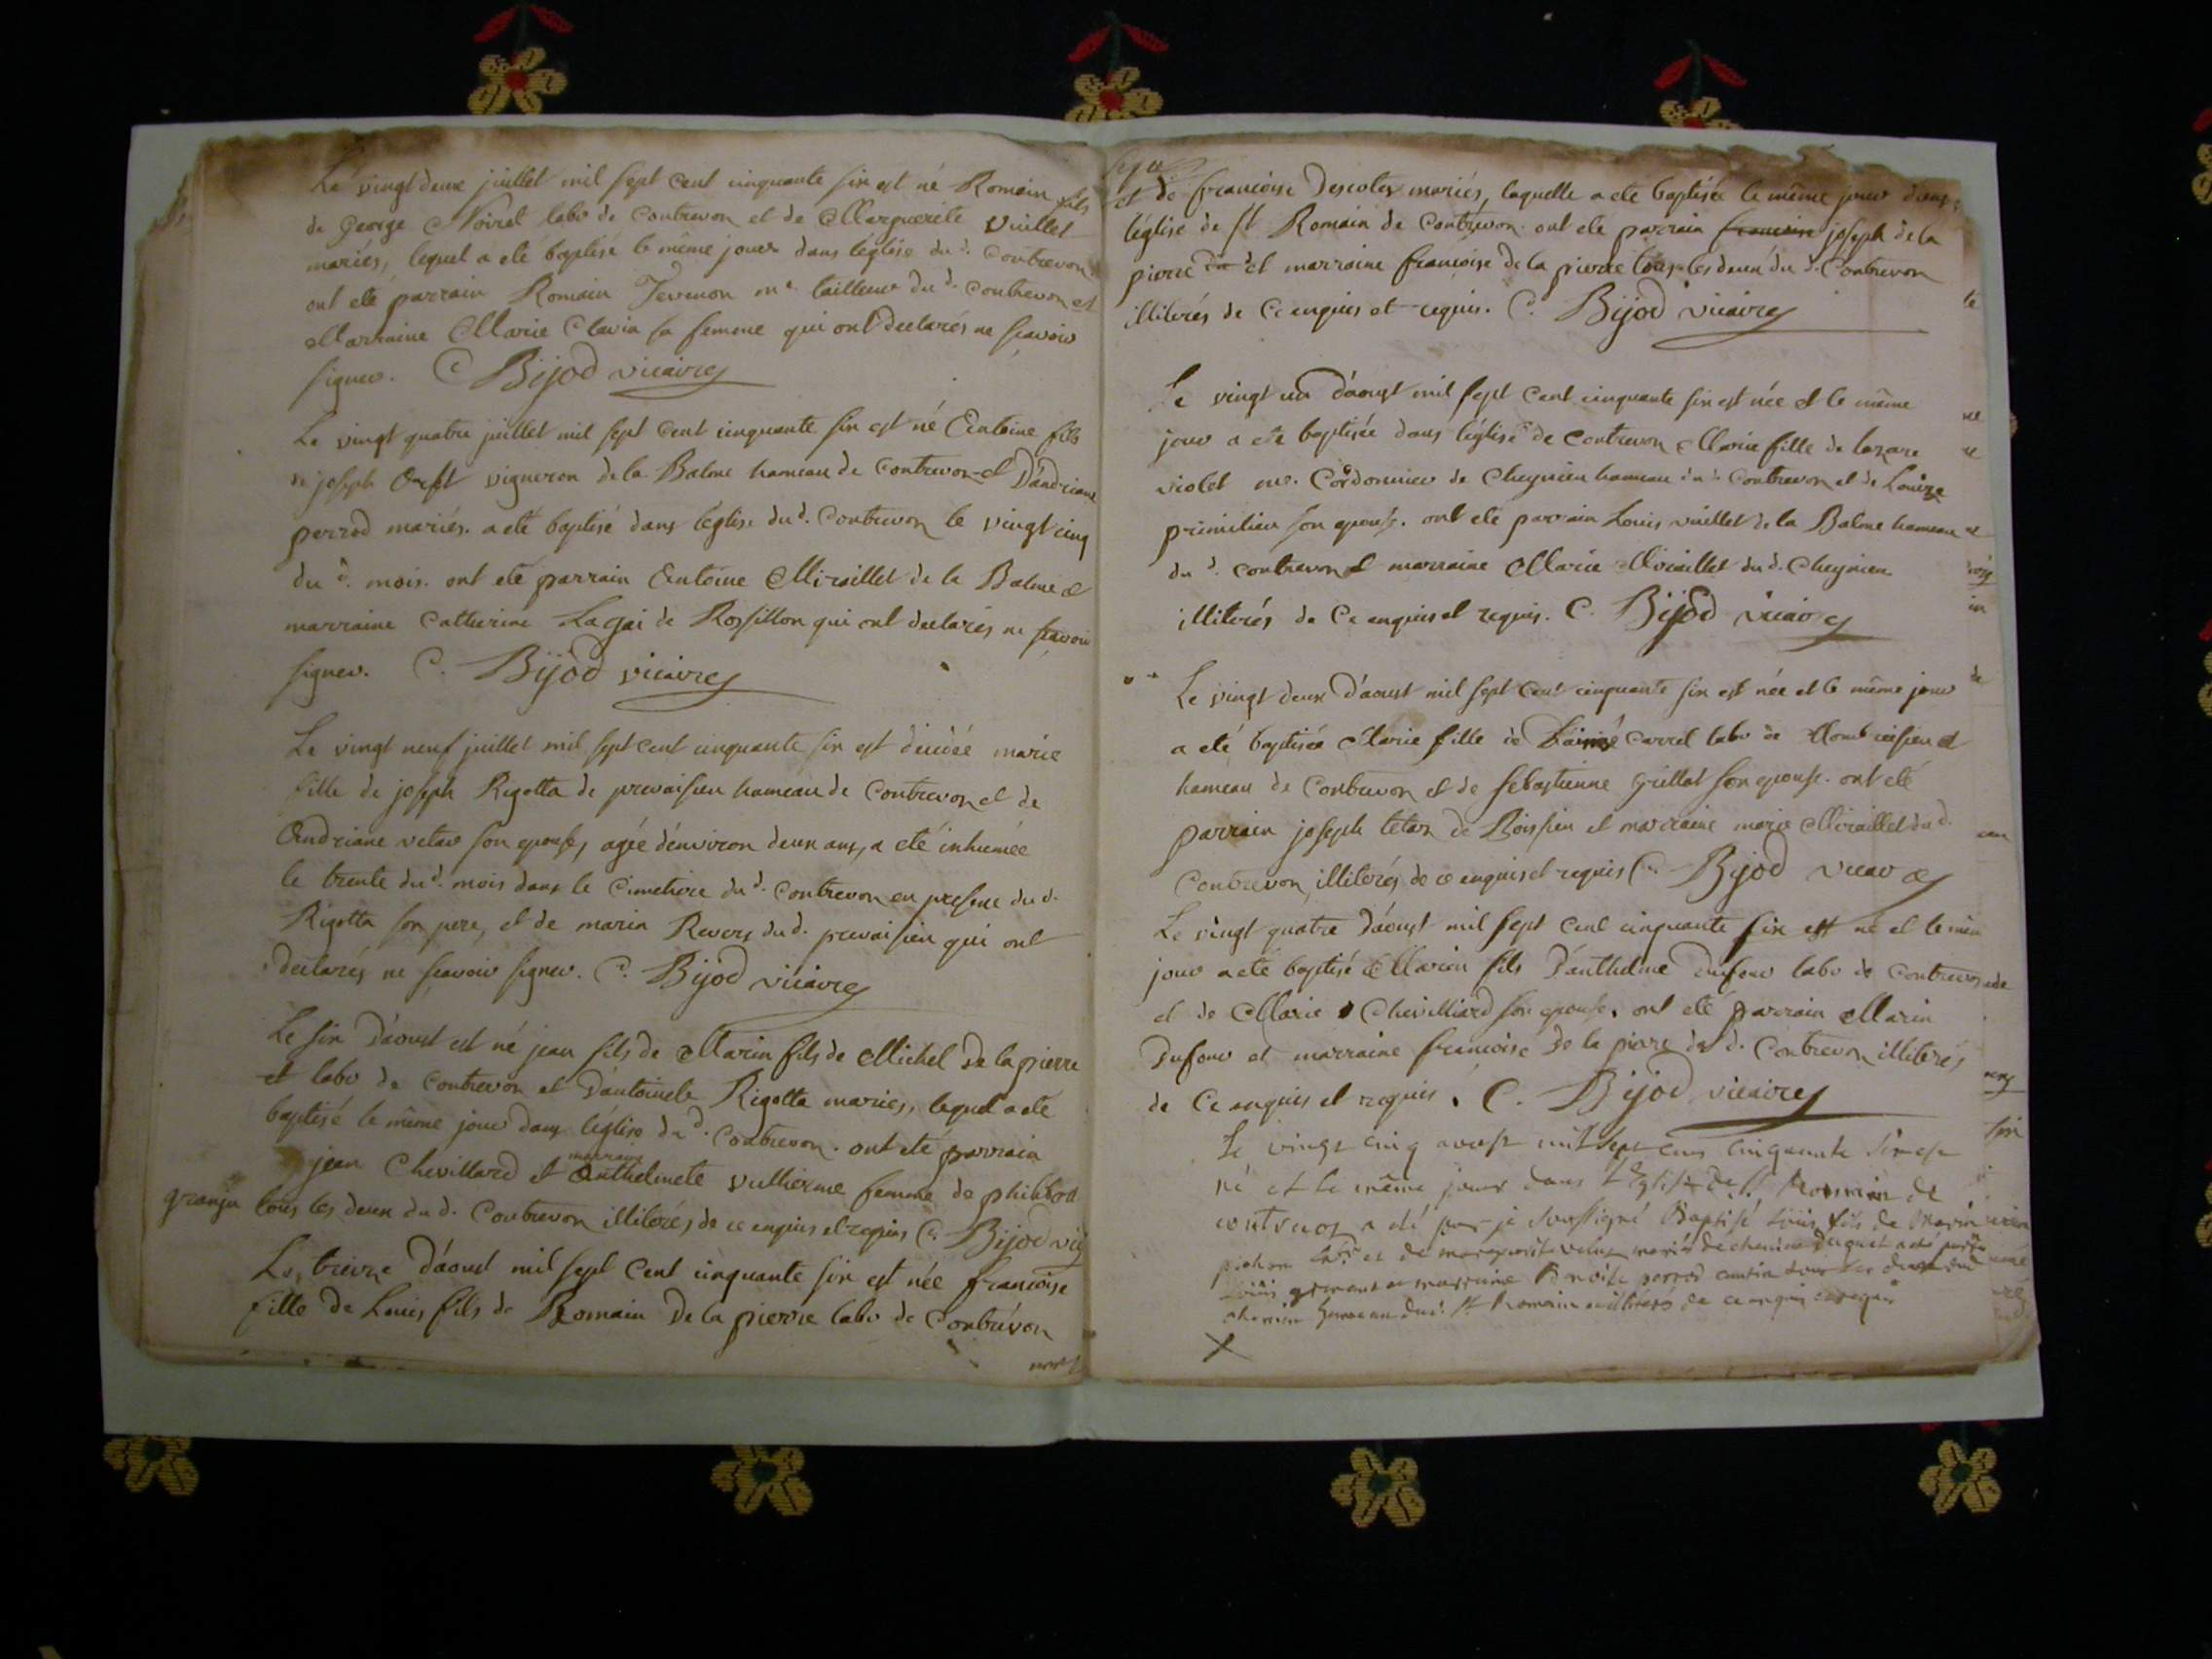 Le vingt deux juillet mil sept cent cinquante six est né Romain fils
de George Noirel labr de Contrevon et de Marguerite Vuillet
mariés, lequel a eté baptisé le même jour dans l'église du d. Contrevon
ont eté parrain Romain Jevenon me tailleur du d. Contrevon et
Marraine Marie Clavin sa femme qui ont declarés ne scavoir
signer. C. Bijod vicaire
Le vingt quatre juillet mil sept cent cinquante six est né Antoine fils
de joseph vigneron de la Balme hameau de Contrevon et D'andriane
perrod mariés. a eté baptisé dans l'église du d. Contrevon le vingt cinq
du d. mois. ont eté parrain Antoine Miraillet de la Balme et
marraine Catherine Lagai de Rossillon qui ont declarés ne scavoir
signer. C. Bijod vicaire
Le vingt neuf juillet mil sept cent cinquante six est décédée marie
fille de joseph Rigotta de prevaisieu hameau de Contrevon et de
Andriane vetar son epouse, agée d'environ deux ans, a eté inhumée
le trente du d. mois dans le Cimetiere du d. Contrevon en presence du d.
Rigotta son pere, et de marin Revers du d. prevaisieu qui ont
declarés ne scavoir signer. C. Bijod vicaire
Le six d'aoust est né jean fils de Marin fils de Michel De la pierre
et labr de Contrevon et D'antoinete Rigotta mariés, lequel a eté
baptisé le même jour dans l'église du d. Contrevon. ont eté parrain
jean Chevillard et marraine Anthelmete Vulherme femme de philibert
granju tous les deux du d. Contrevon illiterés de ce enquis et requis C. Bijod vic
Le treize d'aoust mil sept cent cinquante six est née francoise
fille de Louis fils de Romain De la pierre labr de Contrevon
et de francoise Descotes mariés, laquelle a eté baptisée le même jour dans
l'église de St Romain de Contrevon. ont eté parrain francoise joseph de la
pierre du et marraine francoise De la pierre tous les deux du d. Contrevon
illiterés de Ce enquis et requis. C. Bijod vicaire
Le vingt un d'aoust mil sept cent cinquante six est née et le même
jour a eté baptisée dans l'église de Contrevon Marie fille de lazare
violet me. Cordonnier de Cheynieu hameau du d. Contrevon et de Louize
primilieu son epouse. ont eté parrain Louis vuillet de la Balme hameau
du d. Contrevon et marraine Marie Miraillet du d. Cheynieu
illiterés de Ce enquis et requis. C. Bijod vicaire
Le vingt deux d'aoust mil sept cent cinquante six est née et le même jour
a eté baptisée Marie fille de Carrel labr de
hameau de Contrevon et de Sebastienne Grillat son epouse. ont eté
parrain joseph tetar de Boissieu et marraine marie Miraillet du d.
Contrevon, illiterés de ce enquis et requis C. Bijod vicaire
Le vingt quatre d'aoust mil sept cent cinquante six est né et le mem
jour a eté baptisé Marin fils D'anthelme Dufour labr de Contrevon
et de Marie Chevilliard son epouse. ont eté parrain Marin
Dufour et marraine francoise De la pierre du d. Contrevon illiterés
de Ce enquis et requis. C. Bijod vicaire
Le vingt cinq aoust mil sept cens cinquante six est
né et le même jour dans l'Eglise de St Romain de
a été par je soussigné Baptisé Louis fils de Marin
pichon et de marguerite mariés
Louis et marraine Benoite perrod tous les deux
hameau dud. St Romain illiterés de ce enquis et requis
X